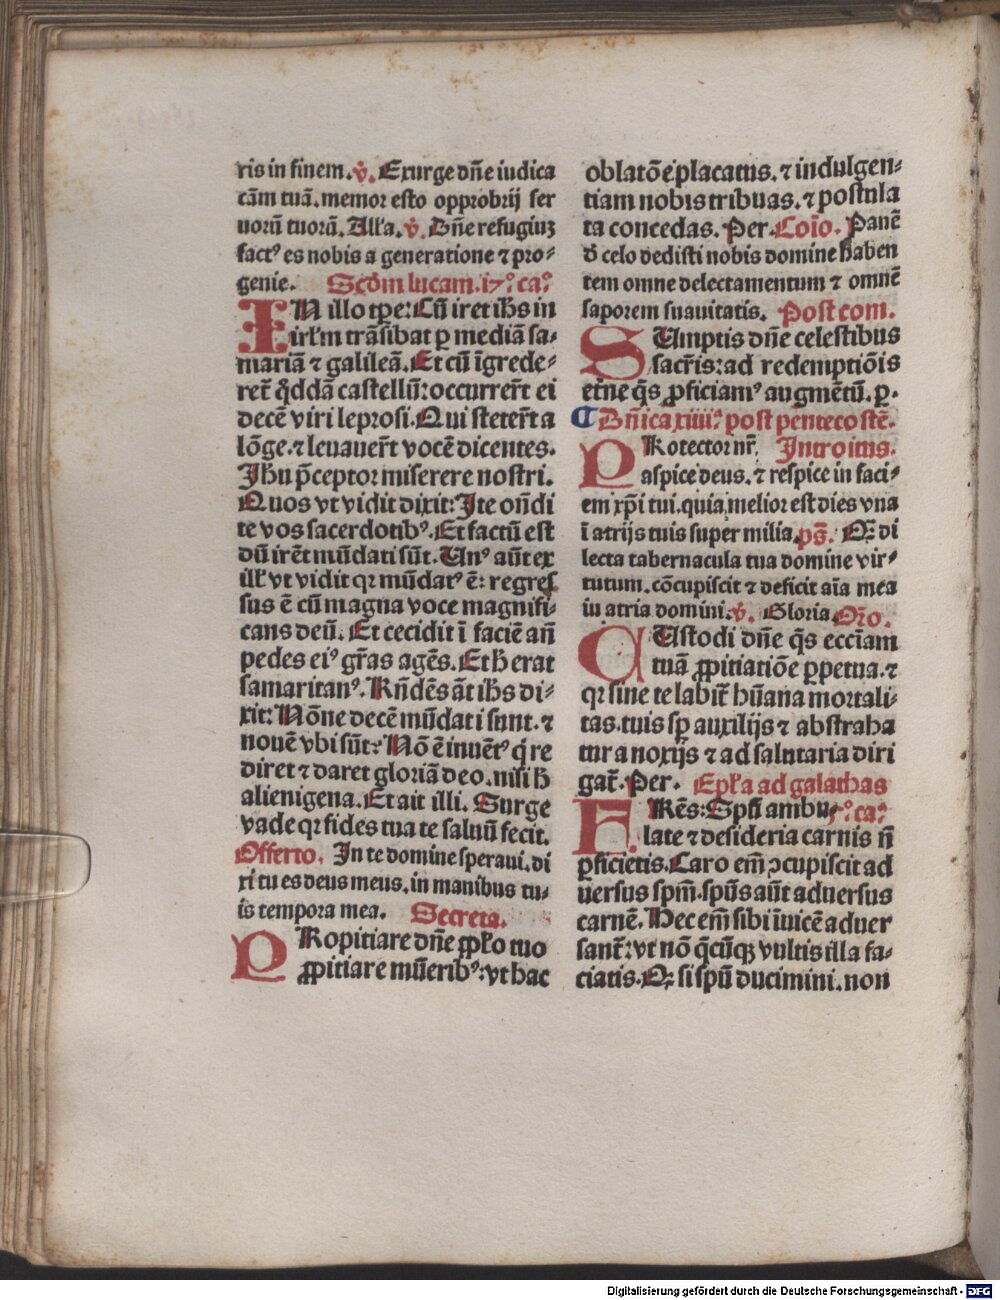 ris in finem. v̊. Exurge dñe iudica
cām tuā. memor esto opprobrij ser
uorū tuorū. Alla. v̊. Dñe refugiuꝫ
factꝰ es nobis a generatione ⁊ pro⸗
genie. Scd̄m lucam. 17.º ca.º
IN illo tpe: Cū iret ihs in
irlm trāsibat ꝑ mediā sa⸗
mariā ⁊ galileā. Et cū īgrede⸗
ret̄ qddā castellū: occurrer̄t ei
decē viri leprosi. Qui steter̄t a
lōge. ⁊ leuauer̄t vocē dicentes.
Ihu p̄ceptor miserere nostri.
Quos vt vidit dixit: Ite ondi
te vos sacerdotibꝰ. Et factū est
dū irēt mūdati sūt. Unꝰ aūt ex
ill vt vidit qꝛ mūdatꝰ ē: regres
sus ē cū magna voce magnifi⸗
cans deū. Et cecidit ī faciē añ
pedes eiꝰ gr̄as agēs. Et h̄ erat
samaritanꝰ. Rn̄dēs āt ihs di⸗
xit: Nōne decē mūdati sunt. ⁊
nouē vbi sūt: Nō ē inuētꝰ q̇ re
diret ⁊ daret gloriā deo. nisi h̄
alienigena. Et ait illi. Surge
vade qꝛ fides tua te saluū fecit.
Offerto. In te domine speraui. di
xi tu es deus meus. in manibus tu⸗
is tempora mea. Secreta.
PRopitiare dñe ꝓplo tuo
ꝓpitiare mūeribꝰ: vt hac
oblatōe placatus. ⁊ indulgen⸗
tiam nobis tribuas. ⁊ postula
ta concedas. Per. Coīo. Panē
d̄ celo dedisti nobis domine haben
tem omne delectamentum ⁊ omnē
saporem suauitatis. Post com.
SUmptis dñe celestibus
sacr̄is: ad redemptiōis
etne q̄s ꝓficiamꝰ augmētū. ꝑ.
¶ Dñica xiiii.ª post pentecostē.
PRotector nr̄. Introitus.
aspice deus. ⁊ respice in faci⸗
em xp̄i tui. quia melior est dies vna
ī atrijs tuis super milia. ps̄. Q̄ di
lecta tabernacula tua domine vir⸗
tutum. cōcupiscit ⁊ deficit aīa mea
in atria domini. v̊. Gloria. Or̄o.
CUstodi dñe q̄s ecc̄iam
tuā ꝓpitiatiōe ꝑpetua. ⁊
qꝛ sine te labit̄ hūana mortali⸗
tas. tuis sꝑ auxilijs ⁊ abstraha
tur a noxijs ⁊ ad salutaria diri
gat̄. Per. Epl̄a ad galathas
FRēs: Spū ambu⸗ 5.º ca.º
late ⁊ desideria carnis n̄
ꝑficietis. Caro em̄ ↄcupiscit ad
uersus spm̄. spūs aūt aduersus
carnē. Hec em̄ sibi īuicē aduer
sant̄: vt nō q̄cūqꝫ vultis illa fa⸗
ciatis. Q̄ si spū ducimini. non
Digitalisierung gefördert durch die Deutsche Forschungsgemeinschaft - DFG